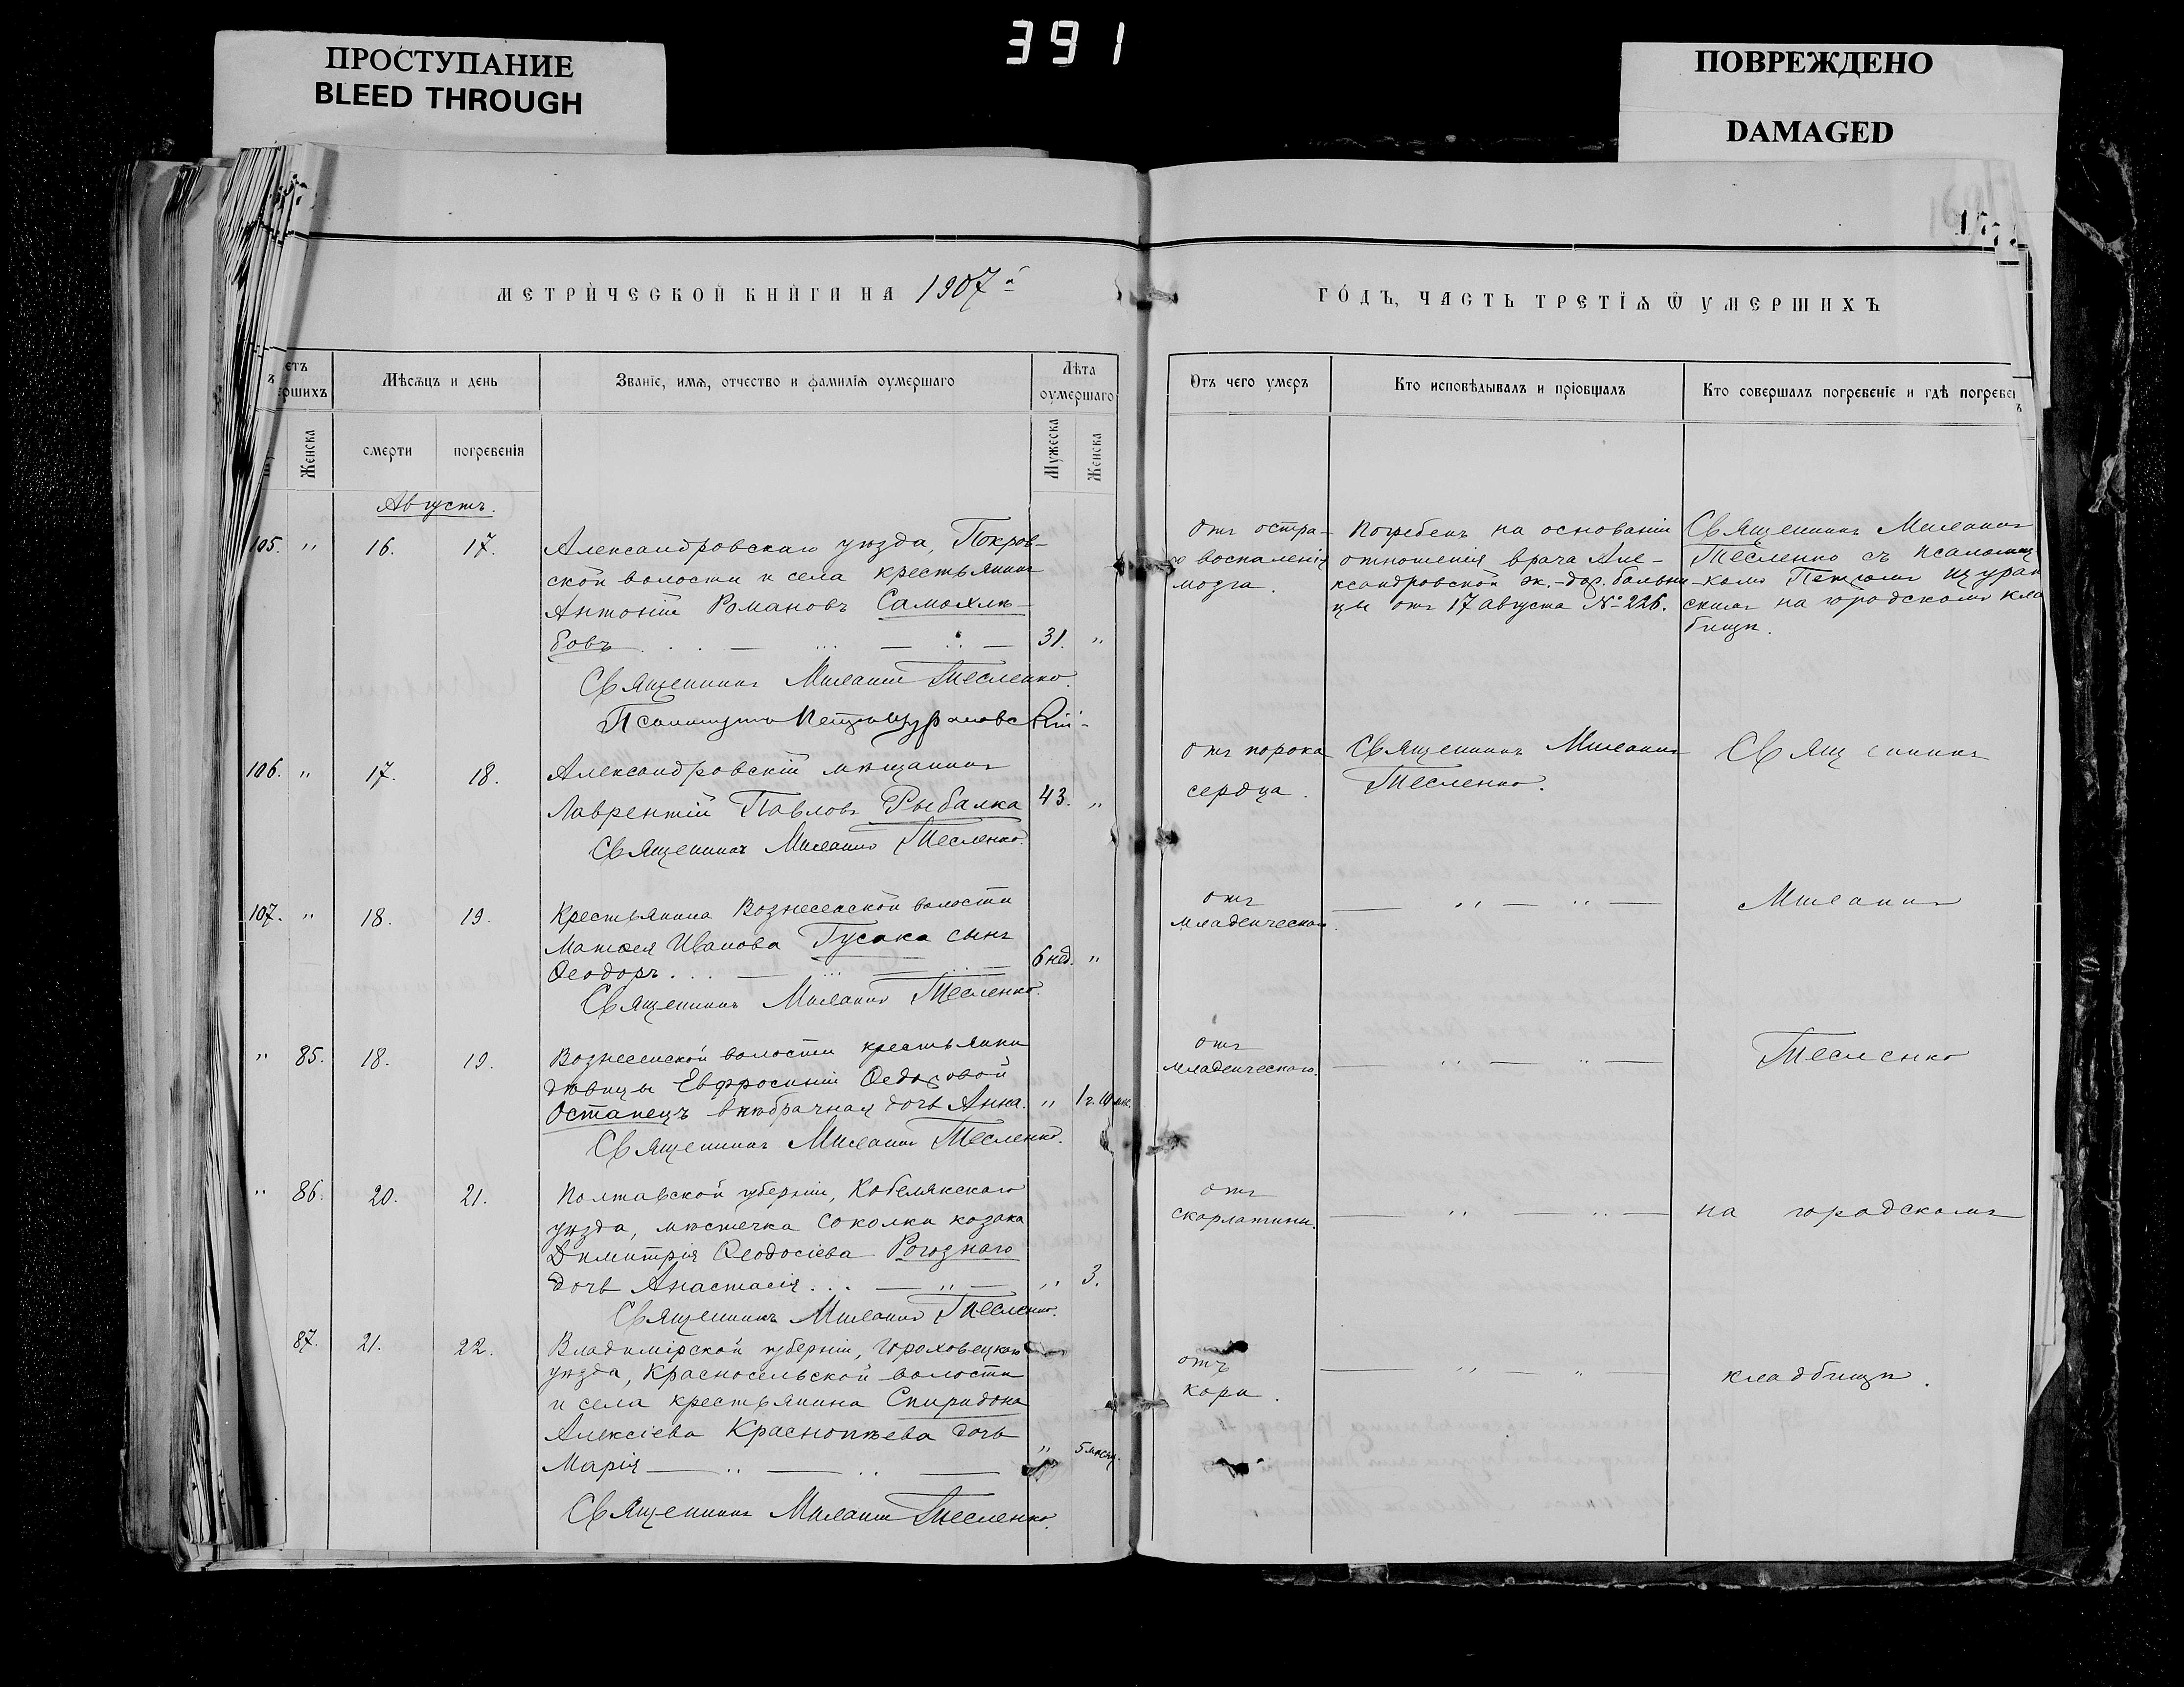 391
ПРОСТУПАНИЕ
BLEED THROUGH
ПОВРЕЖДЕНО
DAMAGED
МЕТРИЧЕСКОЙ КНИГИ НА 1907й
ГОДЪ, ЧАСТЬ ТРЕТІѦ Ѿ УМЕРШИХЪ
Мѣсѧцъ и день
Званіе, имѧ, отчество и фамилїѧ оумершаго
Лѣта оумершаго
Женска
смерти
погребенїѧ
Мужеска
Женска
Отъ чего умеръ
Кто исповѣдывалъ и прїобщалъ
Кто совершалъ погребенїе и гдѣ погребенъ
Августъ.
105. " 16. 17.
Александровскаго уѣзда, Покров-
ской волости и села крестьянинъ
Антоній Романовъ Самохлѣ-
бовъ 31. "
Священникъ Милетій Тесленко.
Отъ остра-
го воспаленія
мозга.
Погребенъ на основаніи
отношенія врача Але-
ксандровской ж.-дор. больни-
цы отъ 17 августа № 226.
Священникъ
Тесленко съ псаломщ
комъ Петромъ
на городскомъ кла
бищѣ.
106. " 17. 18.
Александровскій мѣщанинъ
Лаврентій Павловъ Рыбалка 43. "
Священникъ Тесленко.
Отъ порока
сердца.
Священникъ
Тесленко.
Священникъ
107. " 18. 19.
Крестьянина Вознесенской волости
Матѳея Иванова Гусака сынъ
Ѳеодоръ 6 нед. "
Священникъ Тесленко.
отъ
младенческаго.
" 85. 18. 19.
Вознесенской волости крестьянки
дѣвицы Евфросиніи Ѳедоровой
Останецъ внѣбрачная дочь Анна. " 1 г. 10 мѣс.
Священникъ Тесленко.
отъ
младенческаго.
Тесленко
" 86. 20. 21.
Полтавской губерніи, Кобелякскаго
уѣзда, мѣстечка Соколки козака
Димитрія Ѳеодосіева Рогознаго
дочь Анастасія " 3.
Священникъ Тесленко.
отъ
скарлатины.
на городскомъ
87. 21. 22.
Владимірской губерніи, Гороховецкаго
уѣзда, Красносельской волости
и села крестьянина Спиридона
Алексіева Краснопѣева дочь
Марія " 5 мѣсяц.
Священникъ Тесленко.
отъ
кори.
кладбищѣ.